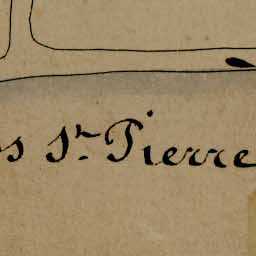 s St. Pierre